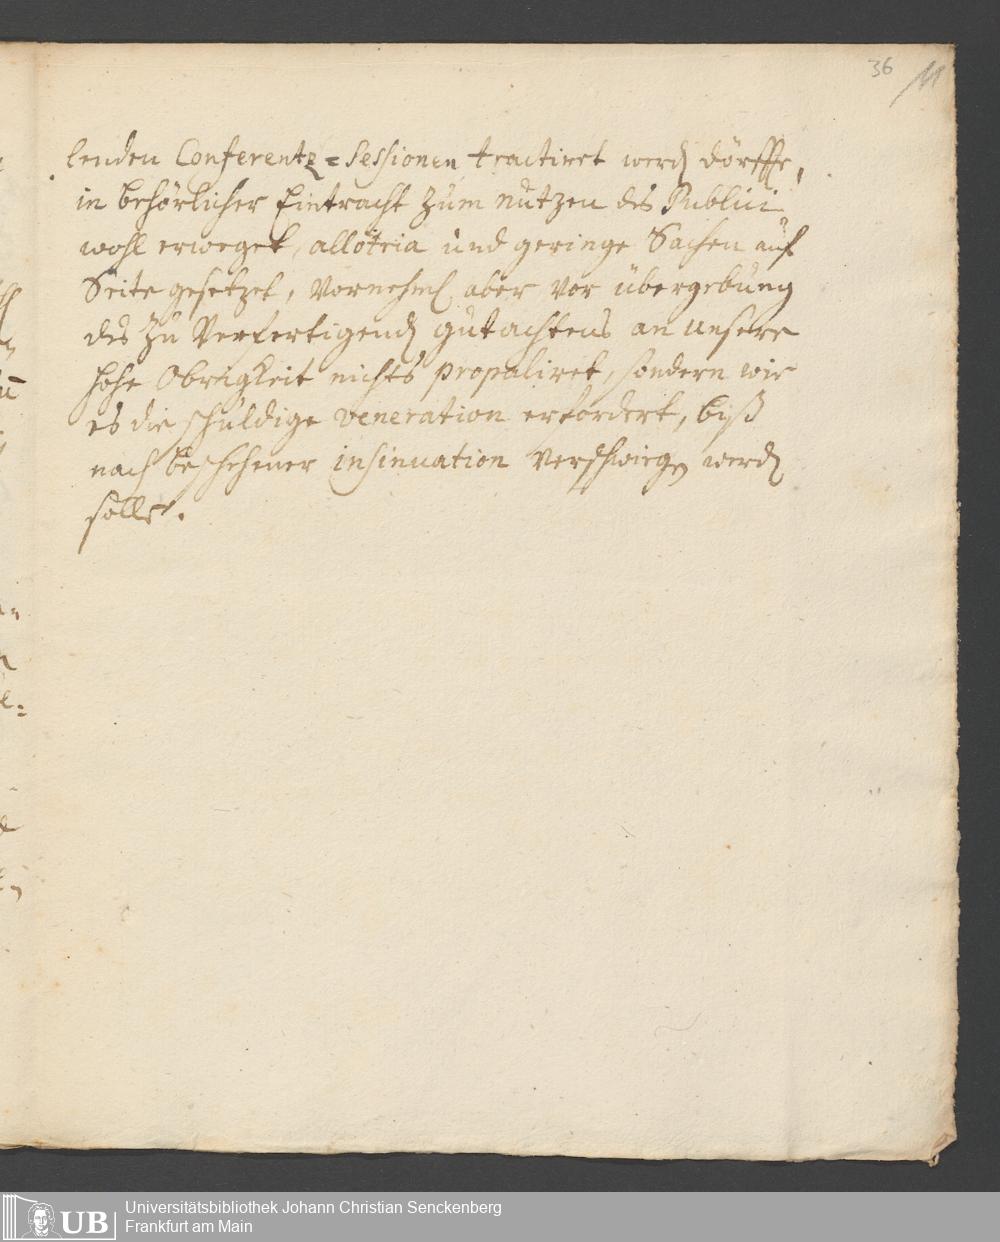 36
lenden Conferentz=Sessionen tractiret werdẽ dörffte,
in behörlicher Eintracht zum nutzen des Publici
wohl erweget, allotria und geringe Sachen auf
Seite gesetzet, vornehml. aber vor übergebung
des zu Verfertigendẽ gutachtens an unsere
hohe Obrigkeit nichts propaliret, sondern wie
es die schuldige veneration erfordert, biß
nach beschehener insinuation verschwiegẽ werdẽ
sollte.
Universitätsbibliothek Johann Christian Senckenberg
Frankfurt am Main
UB